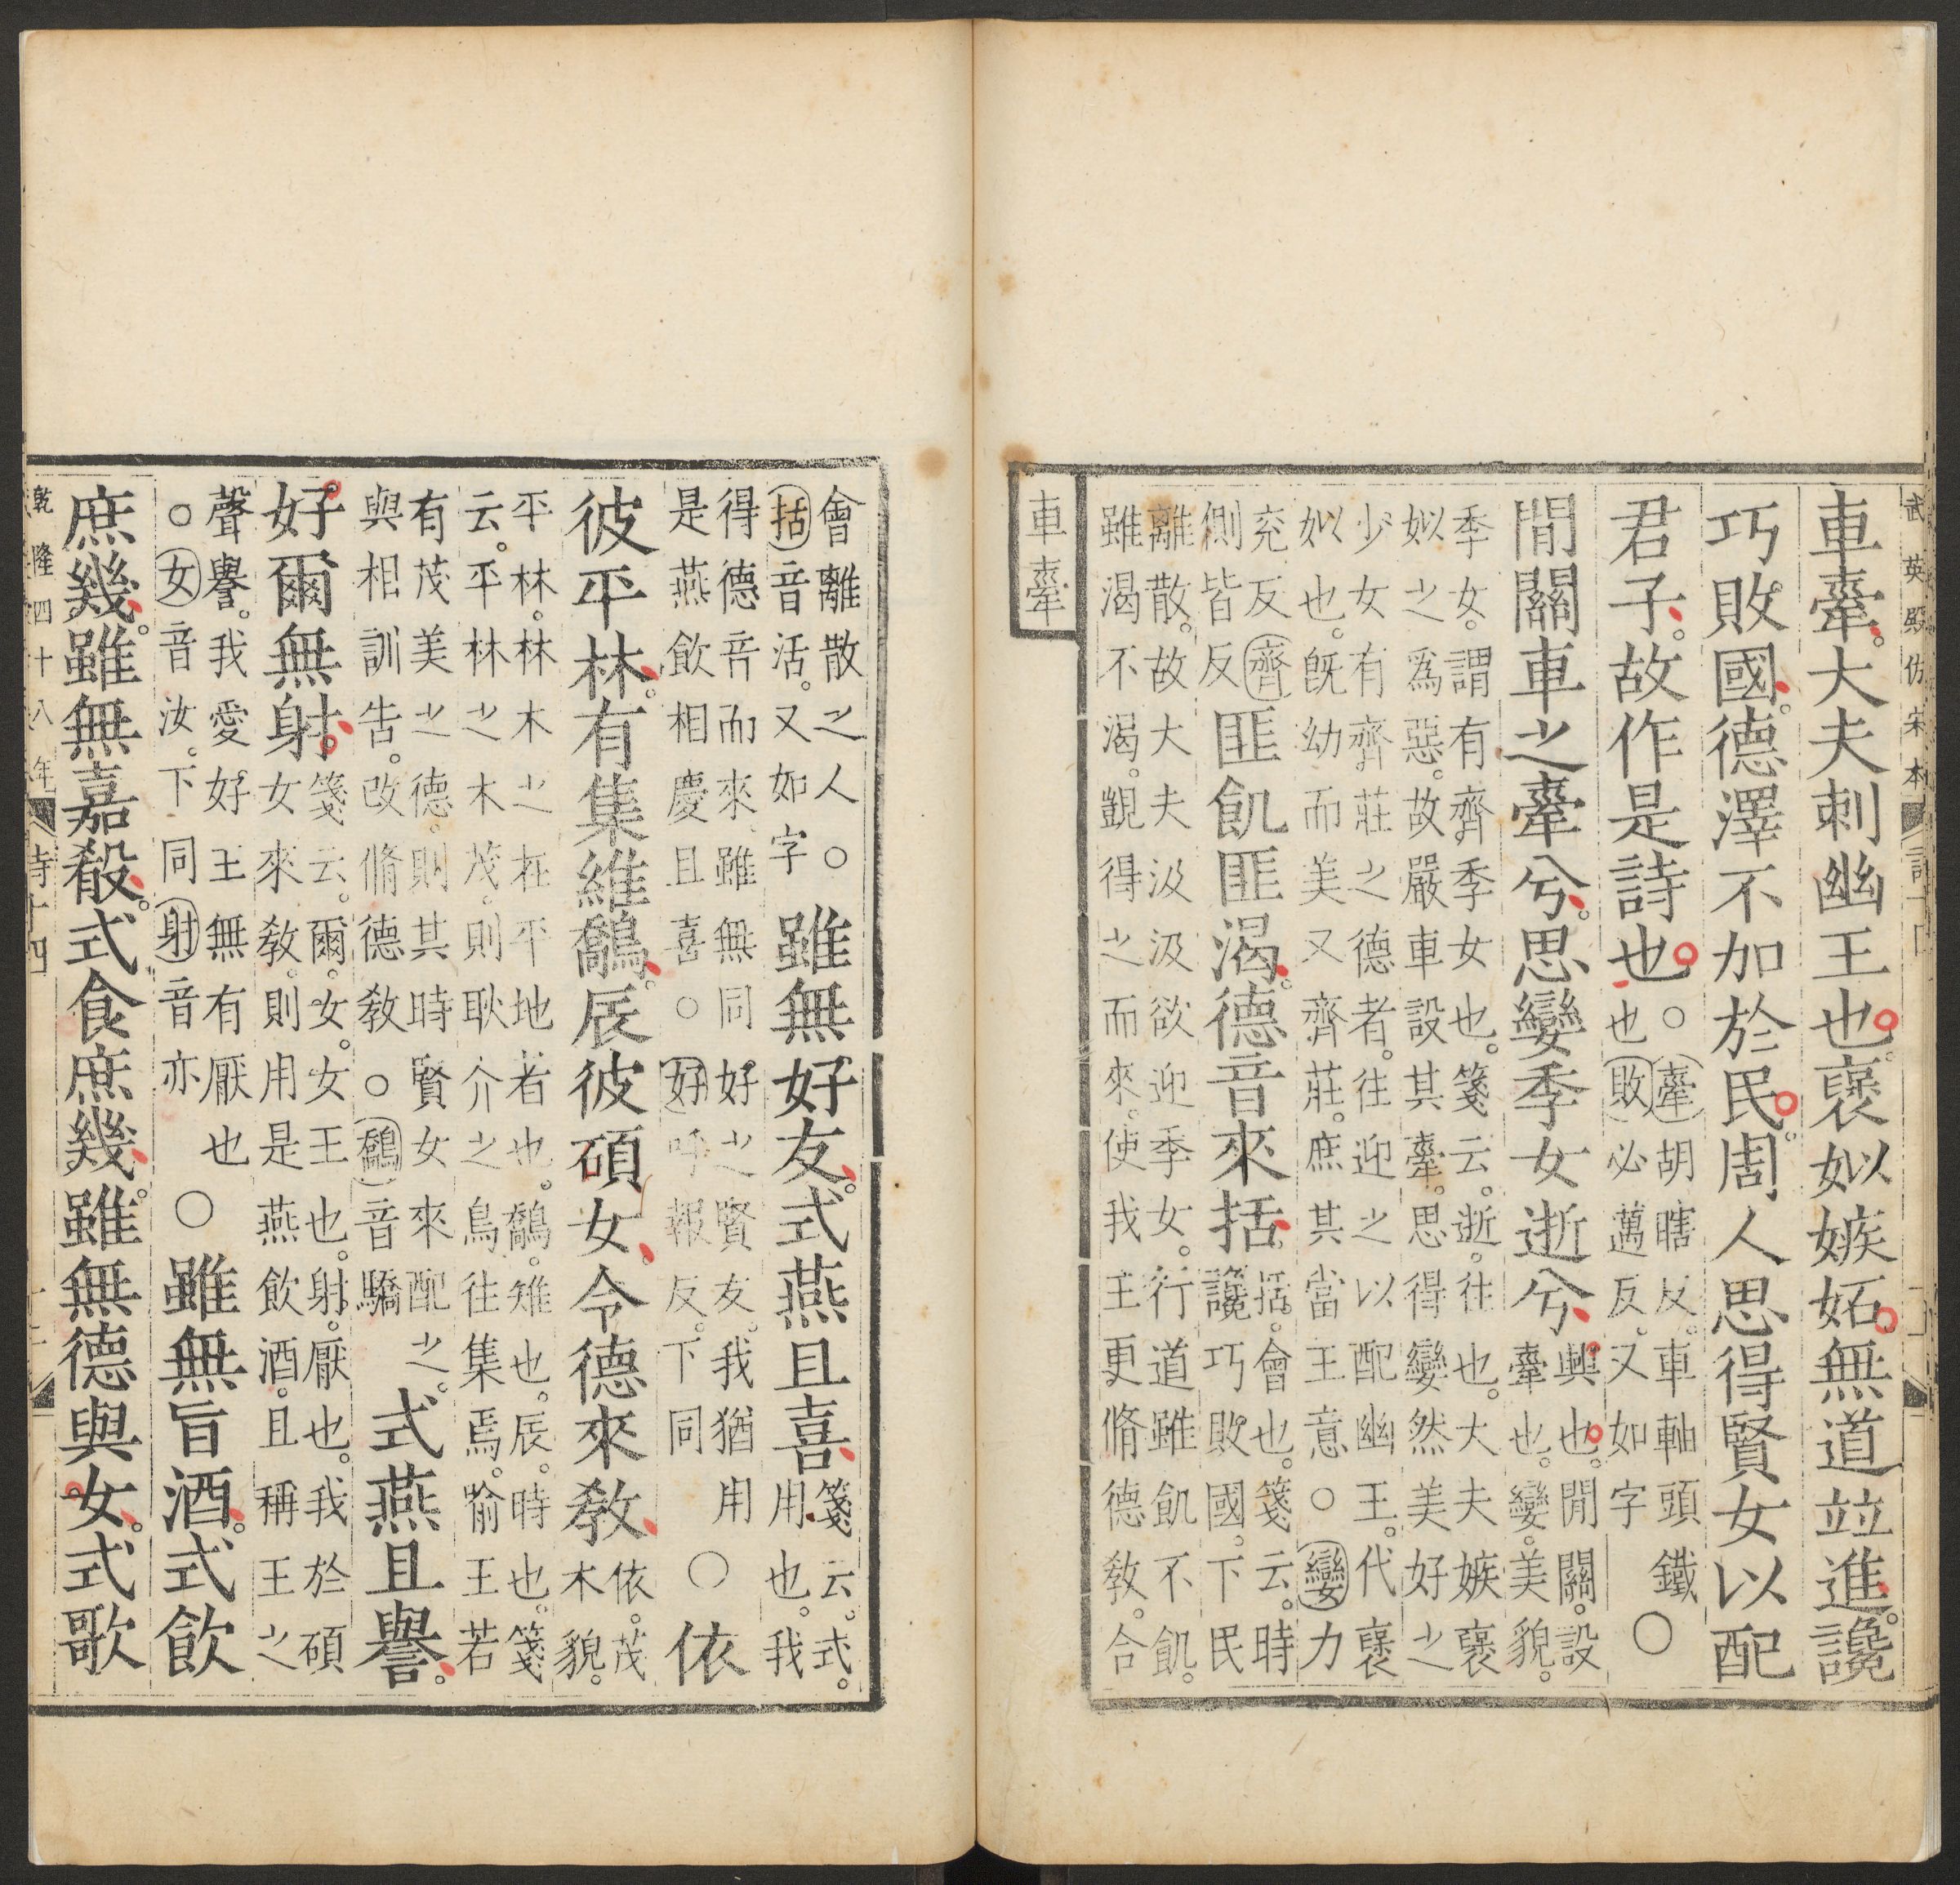 武英殿仿宋本
車舝。大夫刺幽王也。褒姒嫉妬。無道竝進。讒
巧敗國。德澤不加於民。周人思得賢女以配
君子。故作是詩也。
○舝胡瞎反。車軸頭鐵
也敗必邁反。又如字
○
間關車之舝兮。思孌季女逝兮。
興也。間關。設
舝也。孌。美貌。
季女。謂有齊季女也。箋云。逝。往也。大夫嫉褒
姒之爲惡。故嚴車設其舝。思得孌然美好之
少女有齊莊之德者。往迎之以配幽王。代褒
姒也。旣幼而美又齊莊。庶其當王意。○孌力
充反齊
側皆反
匪飢匪渴。德音來括。
括。會也。箋云。時
讒巧敗國。下民
離散。故大夫汲汲欲迎季女。行道雖飢不飢。
雖渴不渴。覬得之而來。使我王更脩德敎。合
車舝
會離散之人。○
括音活。又如字
雖無好友。式燕且喜。
箋云。式。
用也。我
得德音而來。雖無同好之賢友。我猶用
是燕飲相慶且喜○好呼報反。下同
○依
彼平林。有集維鷮。辰彼碩女。令德來敎。
依。茂
木貌。
平林。林木之在平地者也。鷮。雉也。辰。時也。箋
云。平林之木茂。則耿介之鳥往集焉。喻王若
有茂美之德。則其時賢女來配之。
與相訓告。改脩德敎○鷮音驕
式燕且譽。
好爾無射。
箋云。爾。女。女王也。射。厭也。我於碩
女來敎。則用是燕飲酒。且稱王之
聲譽。我愛好王無有厭也
○女音汝。下同射音亦
○雖無旨酒。式飲
庶幾。雖無嘉殽。式食庶幾。雖無德與女。式歌
乾隆四十八年